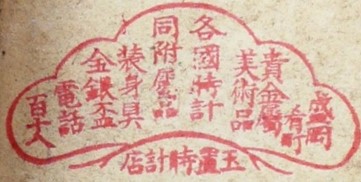 盛岡
肴町
貴金屬
美術品
各國時計
同附属品
装身具
金銀盃
電話
百六八
玉置時計店